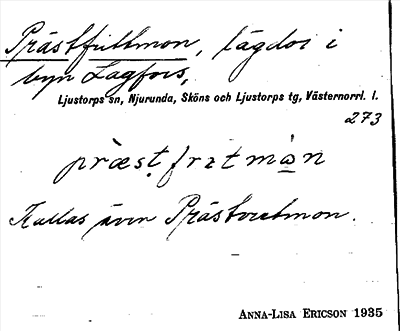 Prästfrittmon, lägdor i
byn Lagfors,
Ljustorps sn, Njurunda, Sköns och Ljustorps tg, Västernorrl. l.
273
præ̀sṭfrɪtmɷ̀n
Kallas även Prästvretmon.
ANNA-LISA ERICSON 1935